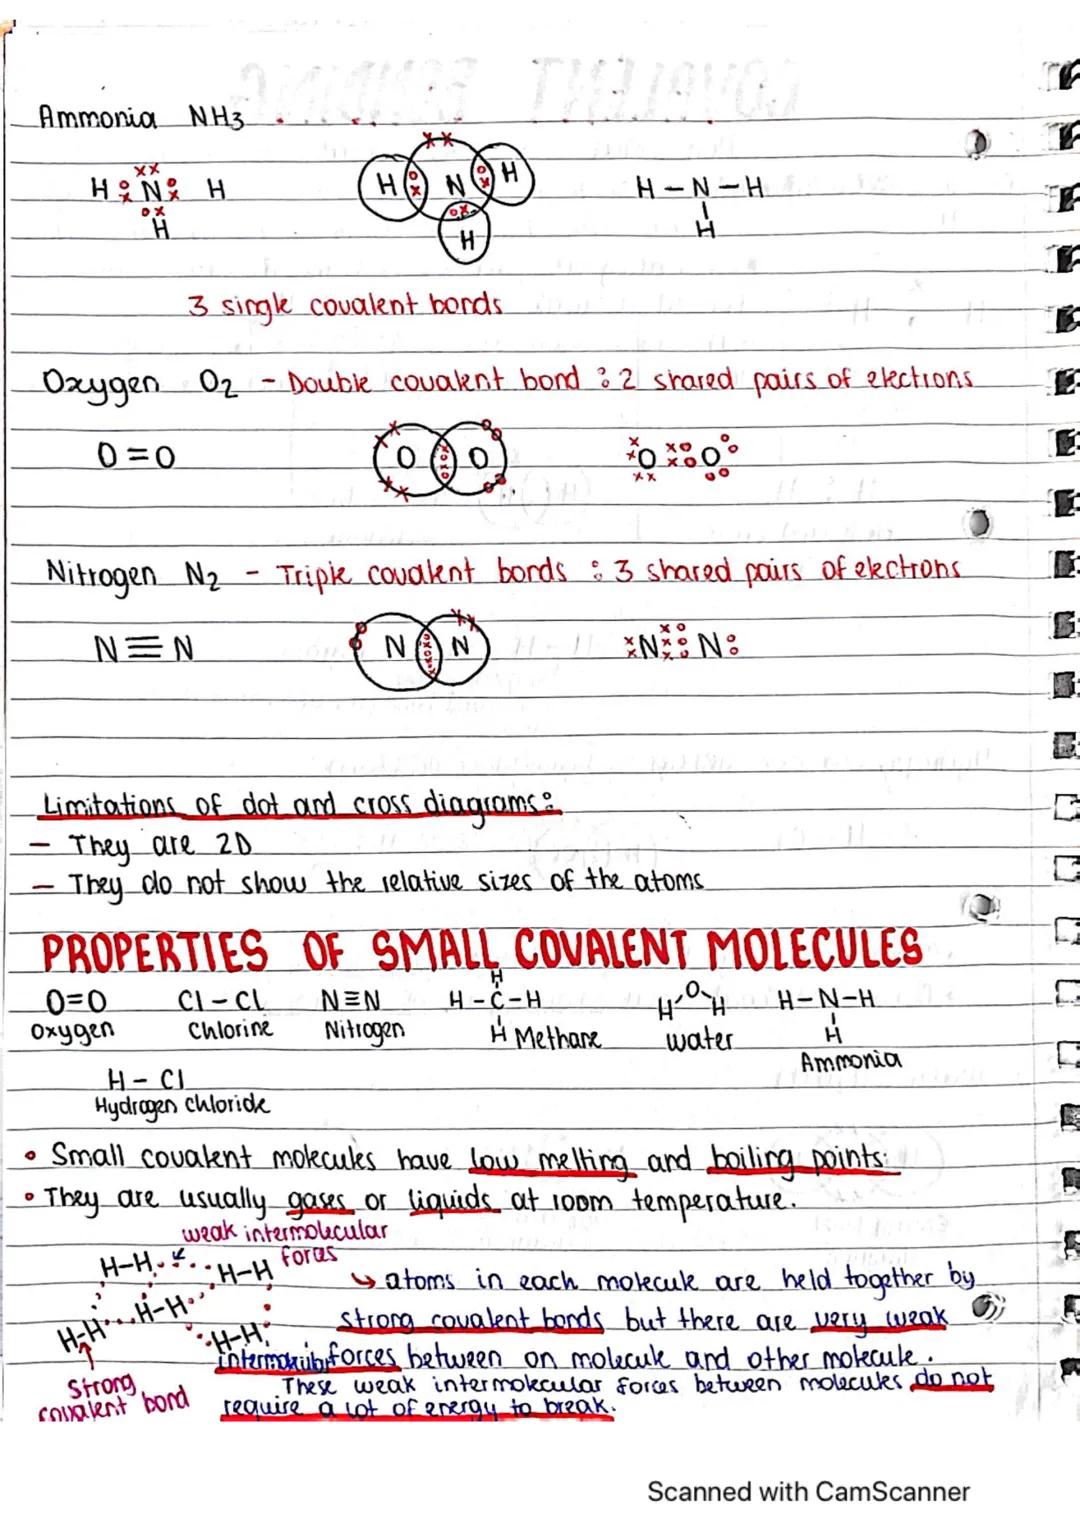 Ammonia NH3
H N H
H
H N H
H
H - N - H
H
3 single covalent bonds
Oxygen O2 - Double covalent bond : 2 shared pairs of electrons
O = O
O O
O O
Nitrogen N2 - Triple covalent bonds : 3 shared pairs of electrons
N ≡ N
N N
N N
Limitations of dot and cross diagrams:
- They are 2D
- They do not show the relative sizes of the atoms
PROPERTIES OF SMALL COVALENT MOLECULES
O=O
Oxygen
Cl - Cl
Chlorine
N≡N
Nitrogen
H
H - C - H
H Methane
O
H H
water
H - N - H
H
Ammonia
H - Cl
Hydrogen chloride
• Small covalent molecules have low melting and boiling points.
• They are usually gases or liquids at room temperature.
weak intermolecular
forces
H-H
H-H
H-H
H-H
H-H
Strong
covalent bond
↳ atoms in each molecule are held together by
strong covalent bonds but there are very weak
intermolecular forces between on molecule and other molecule.
These weak intermolecular forces between molecules do not
require a lot of energy to break.
Scanned with CamScanner